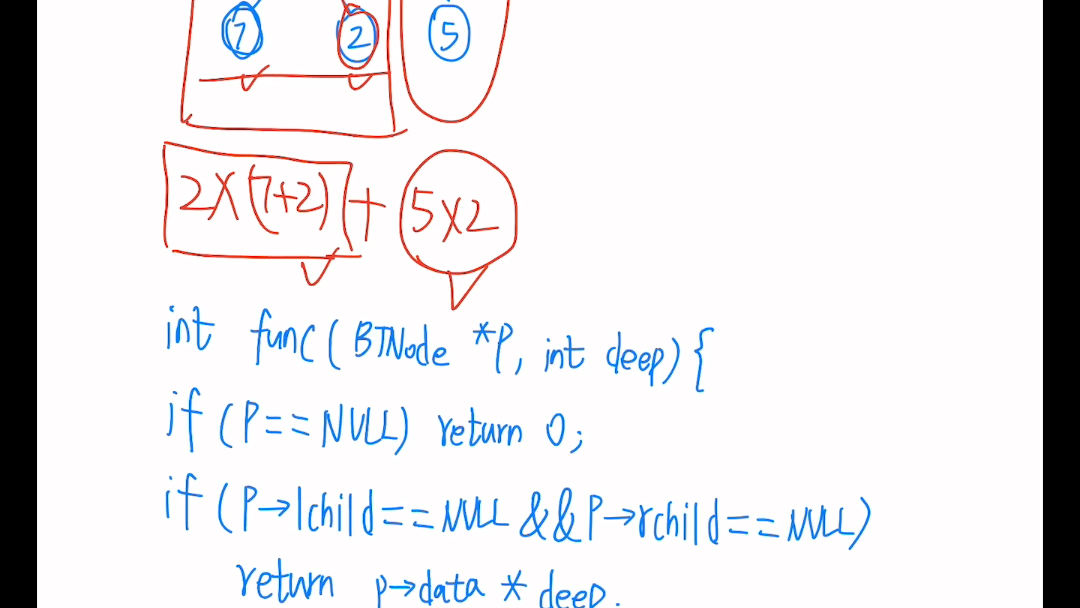 7 2 5
2×(7+2) + 5×2
int func(BTNode *P, int deep){
if (P==NULL) return 0;
if (P→lchild==NULL &&P→rchild==NULL)
return p→data * deep.